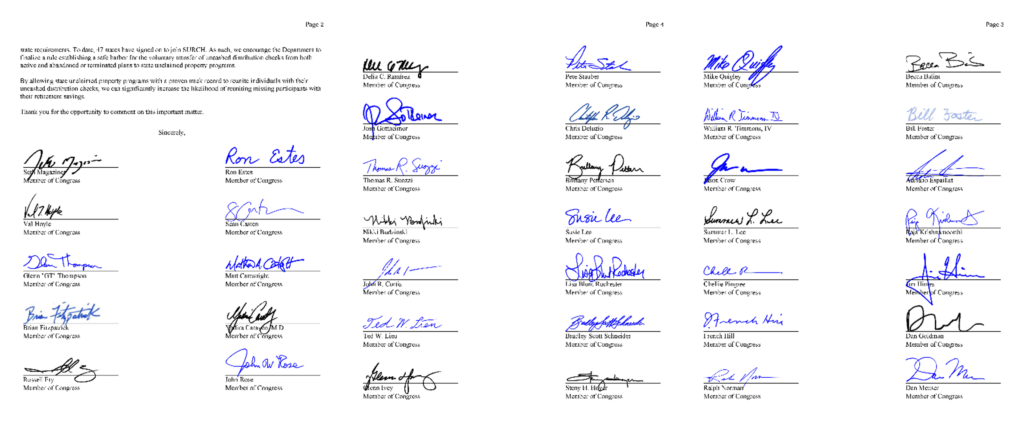 Page 2
state requirements. To date, 47 states have signed on to join SURCH. As such, we encourage the Department to
finalize a rule establishing a safe harbor for the voluntary transfer of unclaimed distribution checks from both
active and abandoned or terminated plans to state unclaimed property programs.
By allowing state unclaimed property programs with a proven track record to reunite individuals with their
uncashed distribution checks, we can significantly increase the likelihood of reuniting missing participants with
their retirement savings.
Thank you for the opportunity to comment on this important matter.
Sincerely,
Seth Magaziner
Member of Congress
Ron Estes
Ron Estes
Member of Congress
Val Hoyle
Val Hoyle
Member of Congress
Sean Casten
Member of Congress
Glenn Thompson
Glenn "GT" Thompson
Member of Congress
Matthew Cartwright
Matt Cartwright
Member of Congress
Brian Fitzpatrick
Brian Fitzpatrick
Member of Congress
Yadira Caraveo, M.D.
Member of Congress
Russell Fry
Member of Congress
John W Rose
John Rose
Member of Congress
Page 4
Delia C. Ramirez
Member of Congress
Pete Stauber
Member of Congress
Josh Gottheimer
Member of Congress
Chris Deluzio
Member of Congress
Thomas R. Suozzi
Thomas R. Suozzi
Member of Congress
Brittany Pettersen
Brittany Pettersen
Member of Congress
Nikki Budzinski
Nikki Budzinski
Member of Congress
Susie Lee
Susie Lee
Member of Congress
John R. Curtis
Member of Congress
Lisa Blunt Rochester
Lisa Blunt Rochester
Member of Congress
Ted W. Lieu
Ted W. Lieu
Member of Congress
Bradley Scott Schneider
Bradley Scott Schneider
Member of Congress
Glenn Ivey
Member of Congress
Steny H. Hoyer
Member of Congress
Page 3
Mike Quigley
Mike Quigley
Member of Congress
Becca Balint
Member of Congress
William R. Timmons IV
William R. Timmons, IV
Member of Congress
Bill Foster
Bill Foster
Member of Congress
Jason Crow
Member of Congress
Adriano Espaillat
Member of Congress
Summer L. Lee
Summer L. Lee
Member of Congress
Raja Krishnamoorthi
Member of Congress
Chellie Pingree
Member of Congress
Jim Himes
Jim Himes
Member of Congress
French Hill
French Hill
Member of Congress
Dan Goldman
Member of Congress
Ralph Norman
Member of Congress
Dan Meuser
Member of Congress